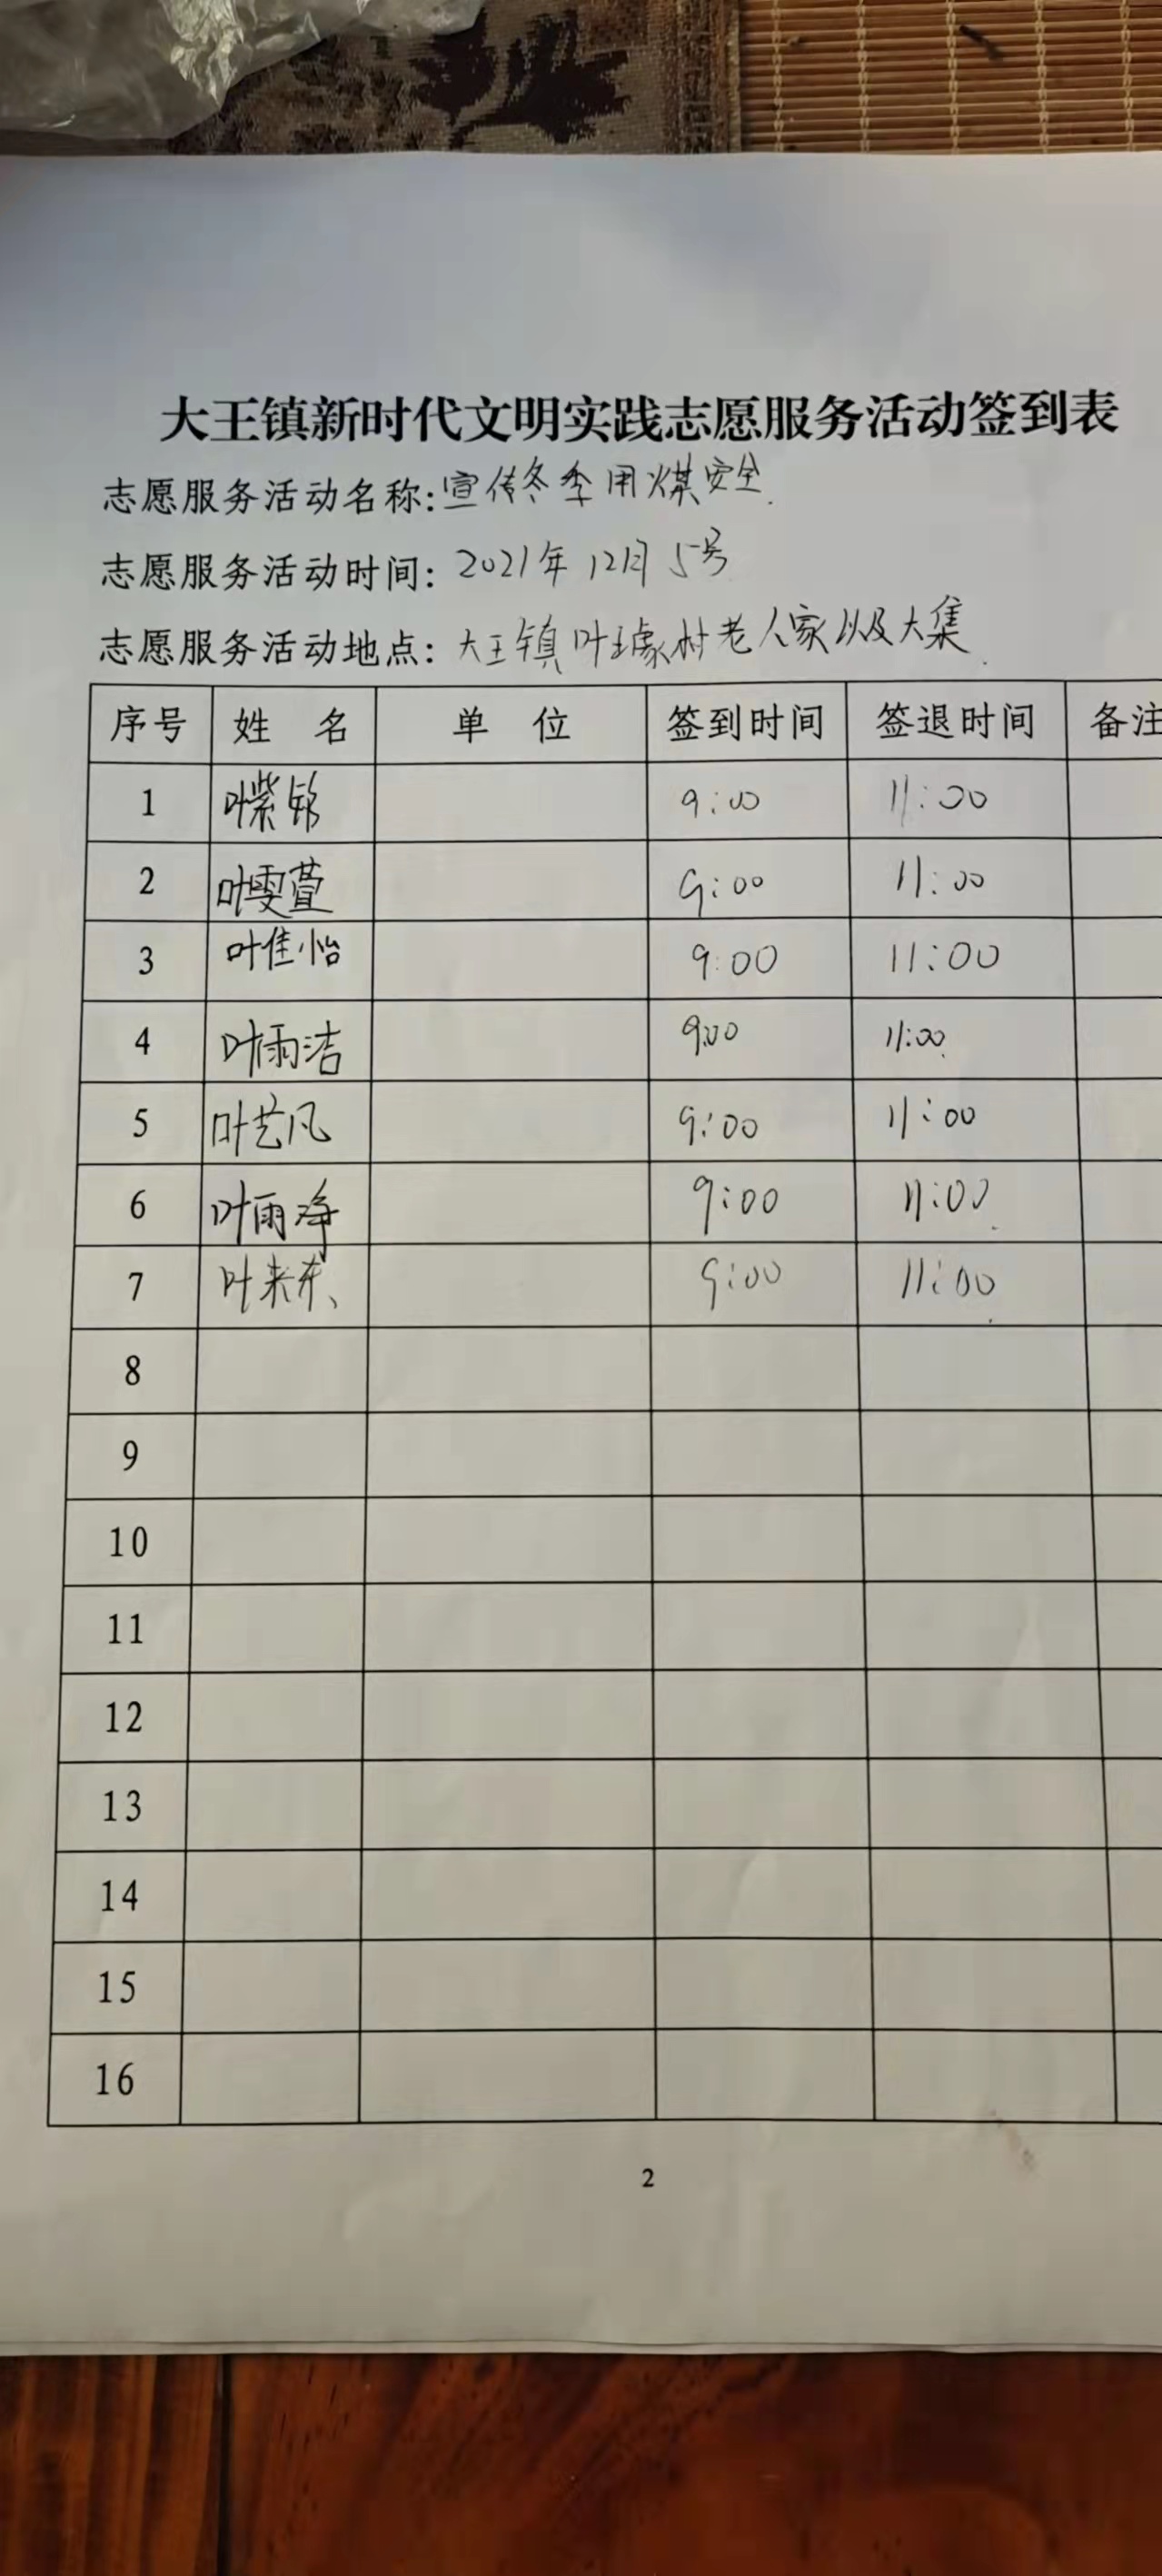 大王镇新时代文明实践志愿服务活动签到表
志愿服务活动名称:宣传冬季用煤安全.
志愿服务活动时间: 2021年12月5号
志愿服务活动地点: 大王镇叶璩村老人家以及大集.
序号 姓 名 单 位 签到时间 签退时间 备注
1 叶紫铭 9:00 11:00
2 叶雯萱 9:00 11:00
3 叶佳怡 9:00 11:00
4 叶雨洁 9:00 11:00
5 叶艺凡 9:00 11:00
6 叶雨净 9:00 11:00
7 叶来东 9:00 11:00
8
9
10
11
12
13
14
15
16
2